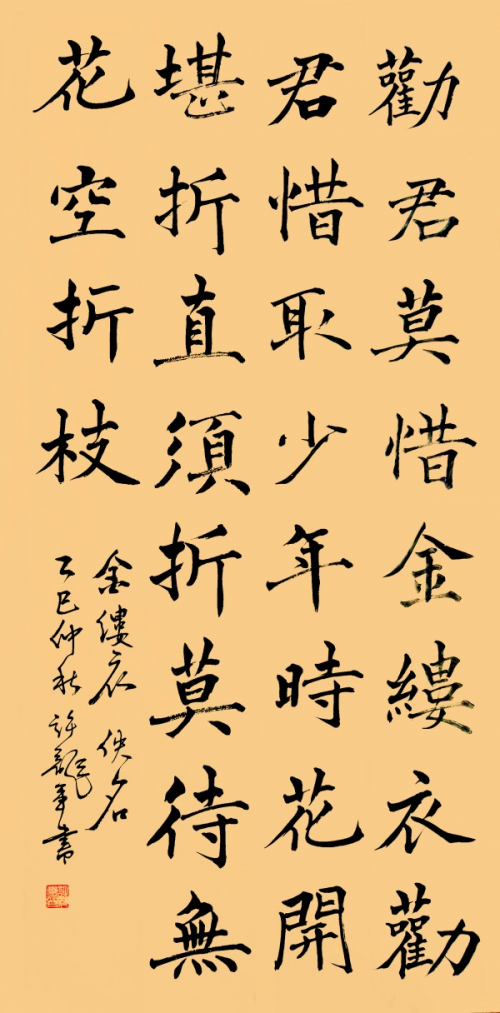 勸君莫惜金縷衣勸
君惜取少年時花開
堪折直須折莫待無
花空折枝
金縷衣 佚名
乙巳仲秋 許龍平書